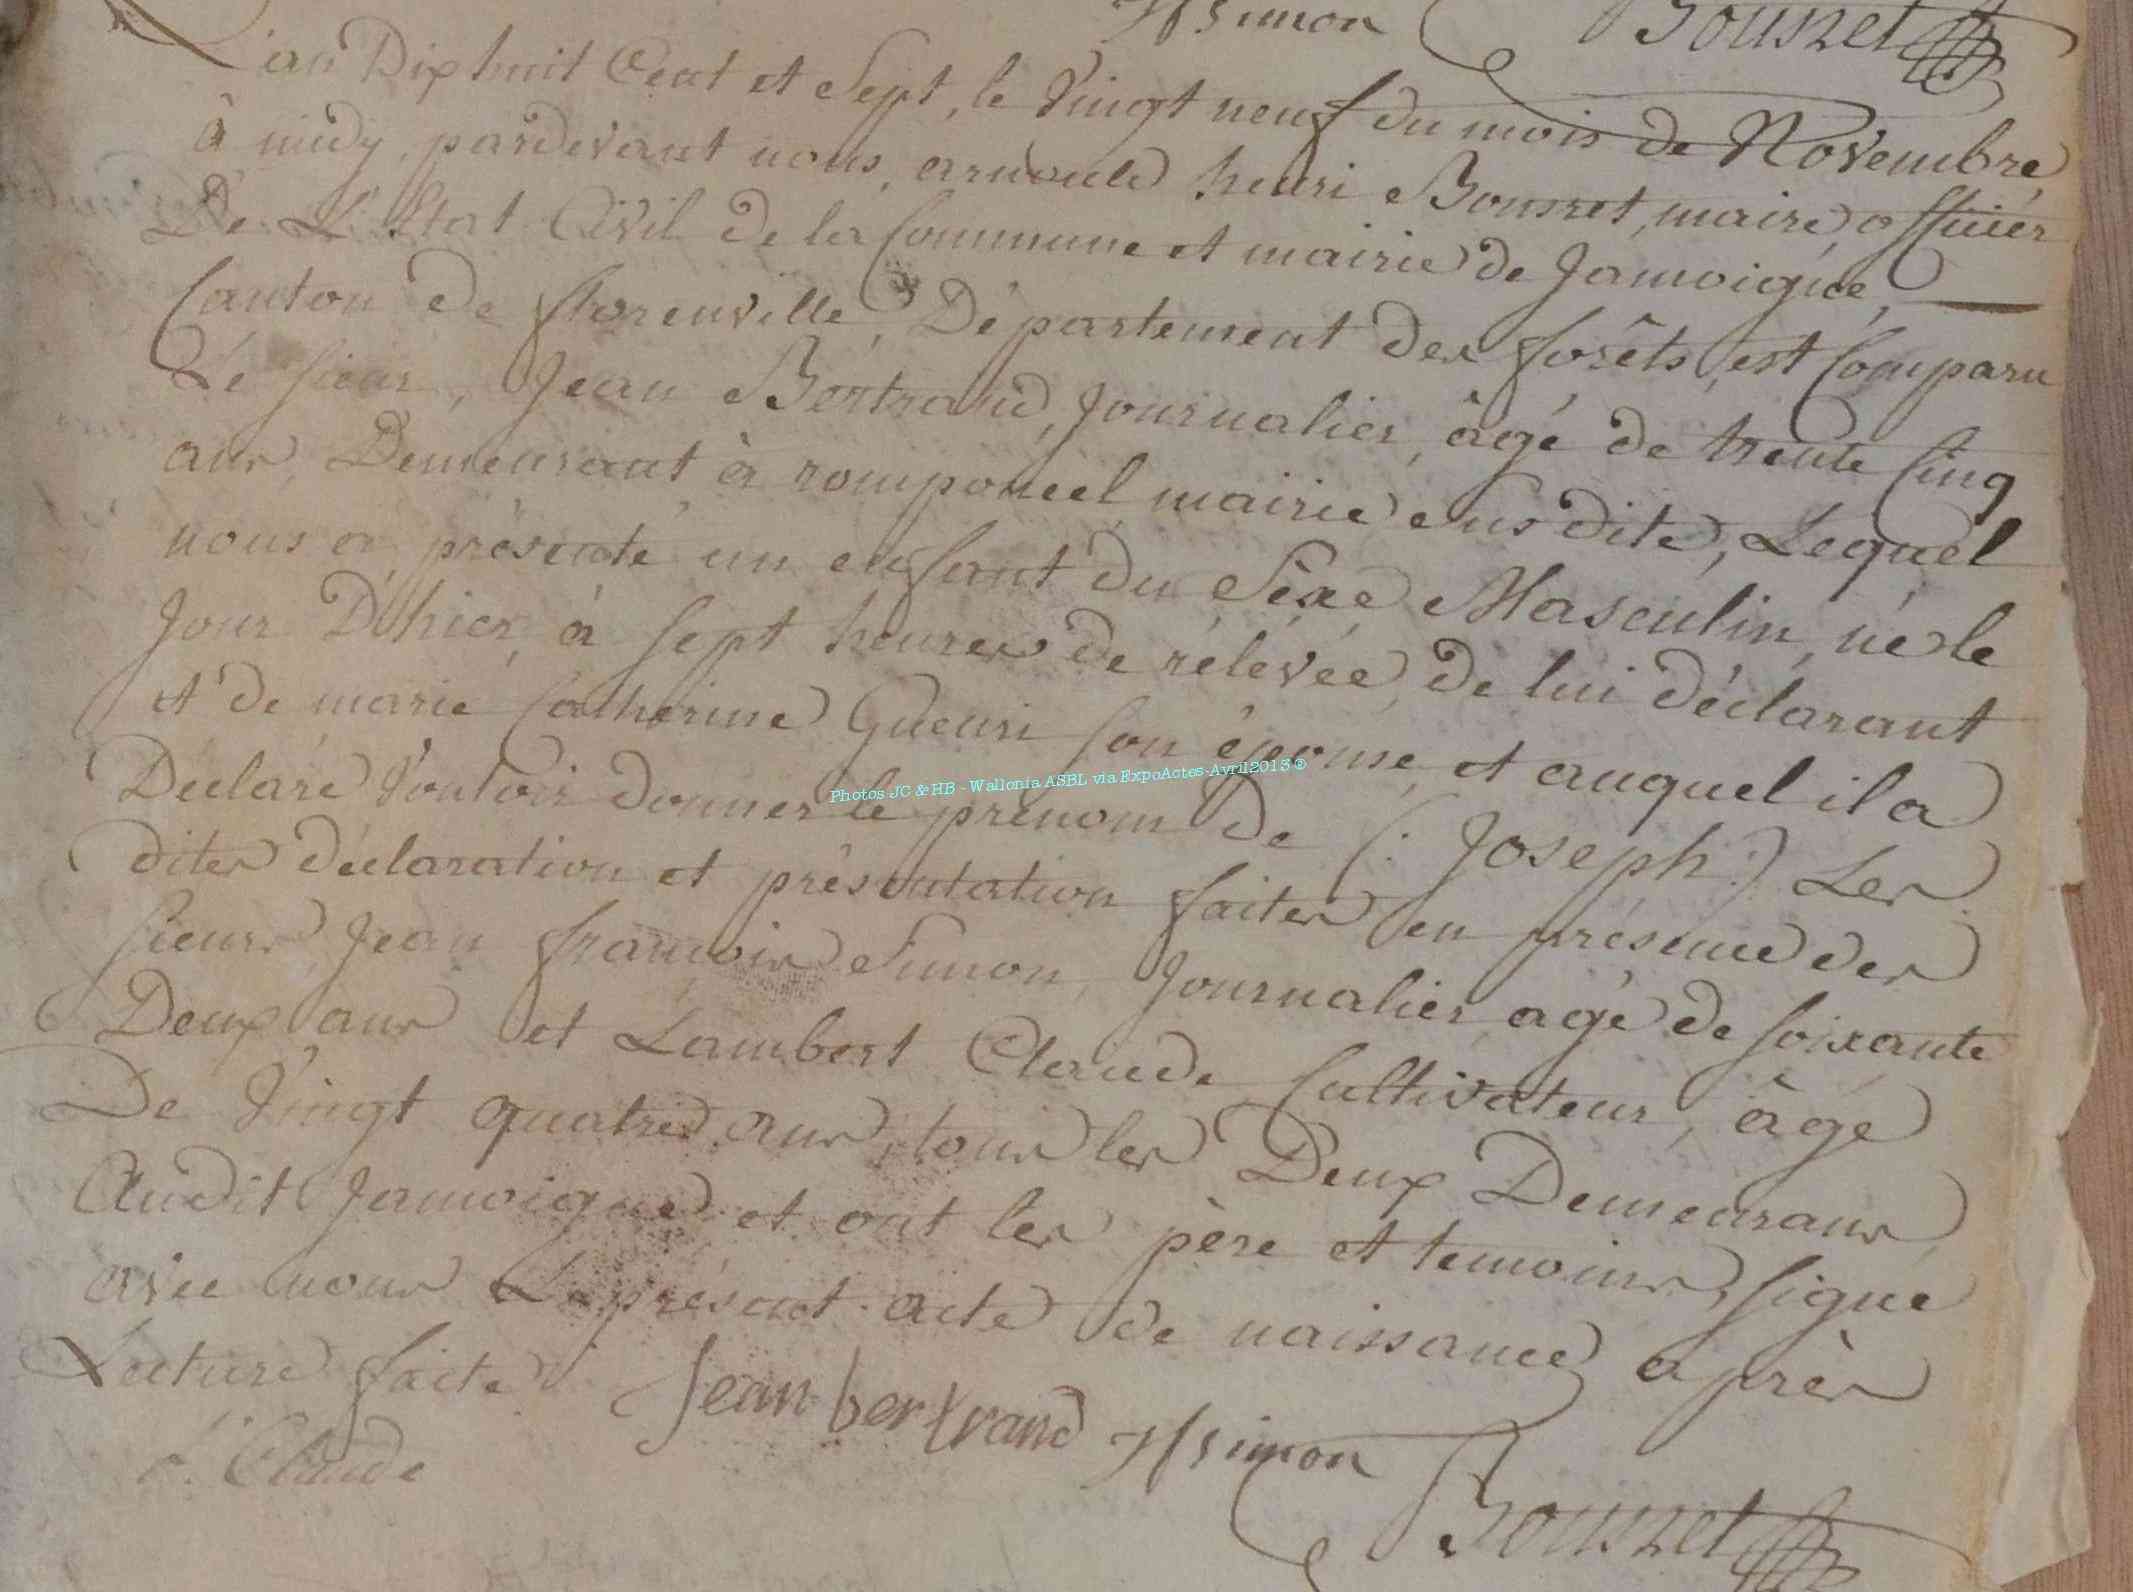 JfSimon Bousret
L'an Dix huit Cent et Sept, le Vingt neuf du mois de Novembre,
à midy, pardevant nous, arnould henri Bousret, maire, officier
De L'Etat Civil de la Commune et mairie de Jamoigne,
Canton de florenville, Département des forêts, est Comparu
Le sieur, Jean Bertrand, Journalier, âgé de trente Cinq
ans, Demeurant à romponcel mairie susdite, Lequel
nous a présenté un enfant du Sexe Masculin, né le
Jour D'hier, à sept heures de rélévée, de lui déclarant
et de marie Catherine Gueuri son épouse, et auquel il a
Déclaré Vouloir donner le prénom De (: Joseph :) Les
dites déclaration et présentation faites en présence des
sieurs, Jean françois Simon, Journalier agé de soixante
Deux ans et Lambert Claude Cultivateur, âgé
De Vingt quatre ans, tous les Deux Demeurans
Audit Jamoigne et ont les père et temoins, signé
avec nous Le présent acte de naissance après
Lecture faite Jean bertrand JfSimon
L. Claude Bousret
Photos JC & HB - Wallonia ASBL via ExpoActes-Avril2013 ©